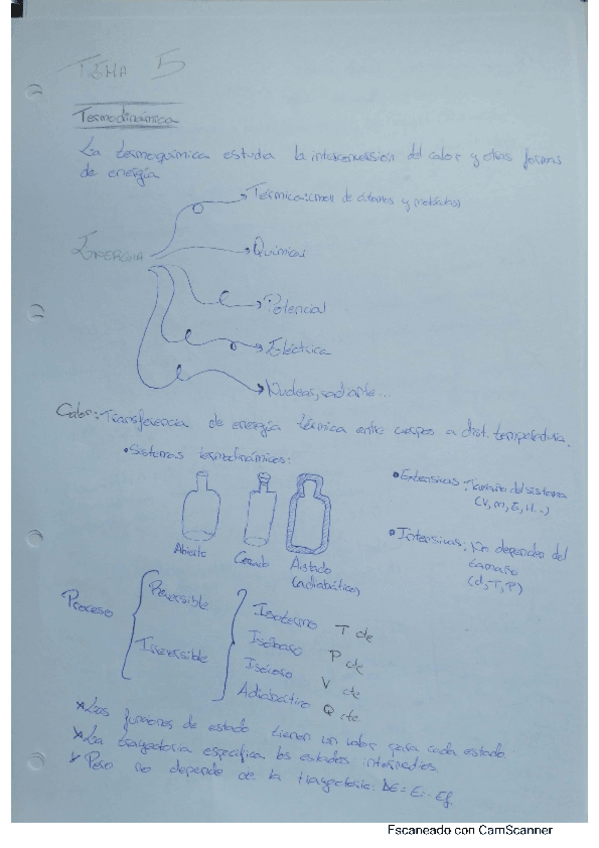 TEMA 5
Termodinámica
La termoquímica estudia la interconversión del calor y otras formas
de energía
Térmica: (mov de átomos y moléculas)
ENERGIA
Química
Potencial
Eléctrica
Nuclear, radiante...
Calor: Transferencia de energía térmica entre cuerpos a dist. temperatura.
• Sistemas termodinámicos:
Abierto
Cerrado
Aislado
(adiabático)
• Extensivas: Tamaño del sistema
(V, m, E, H...)
• Intensivas: No dependen del
tamaño
(d, T, P)
Proceso
Reversible
Irreversible
Isotermo T cte
Isóbaro P cte
Isócoro V cte
Adiabático Q cte.
Las funciones de estado tienen un valor para cada estado.
La trayectoria especifica los estados intermedios.
Pero no depende de la trayectoria: ΔE = Ei - Ef.
Escaneado con CamScanner